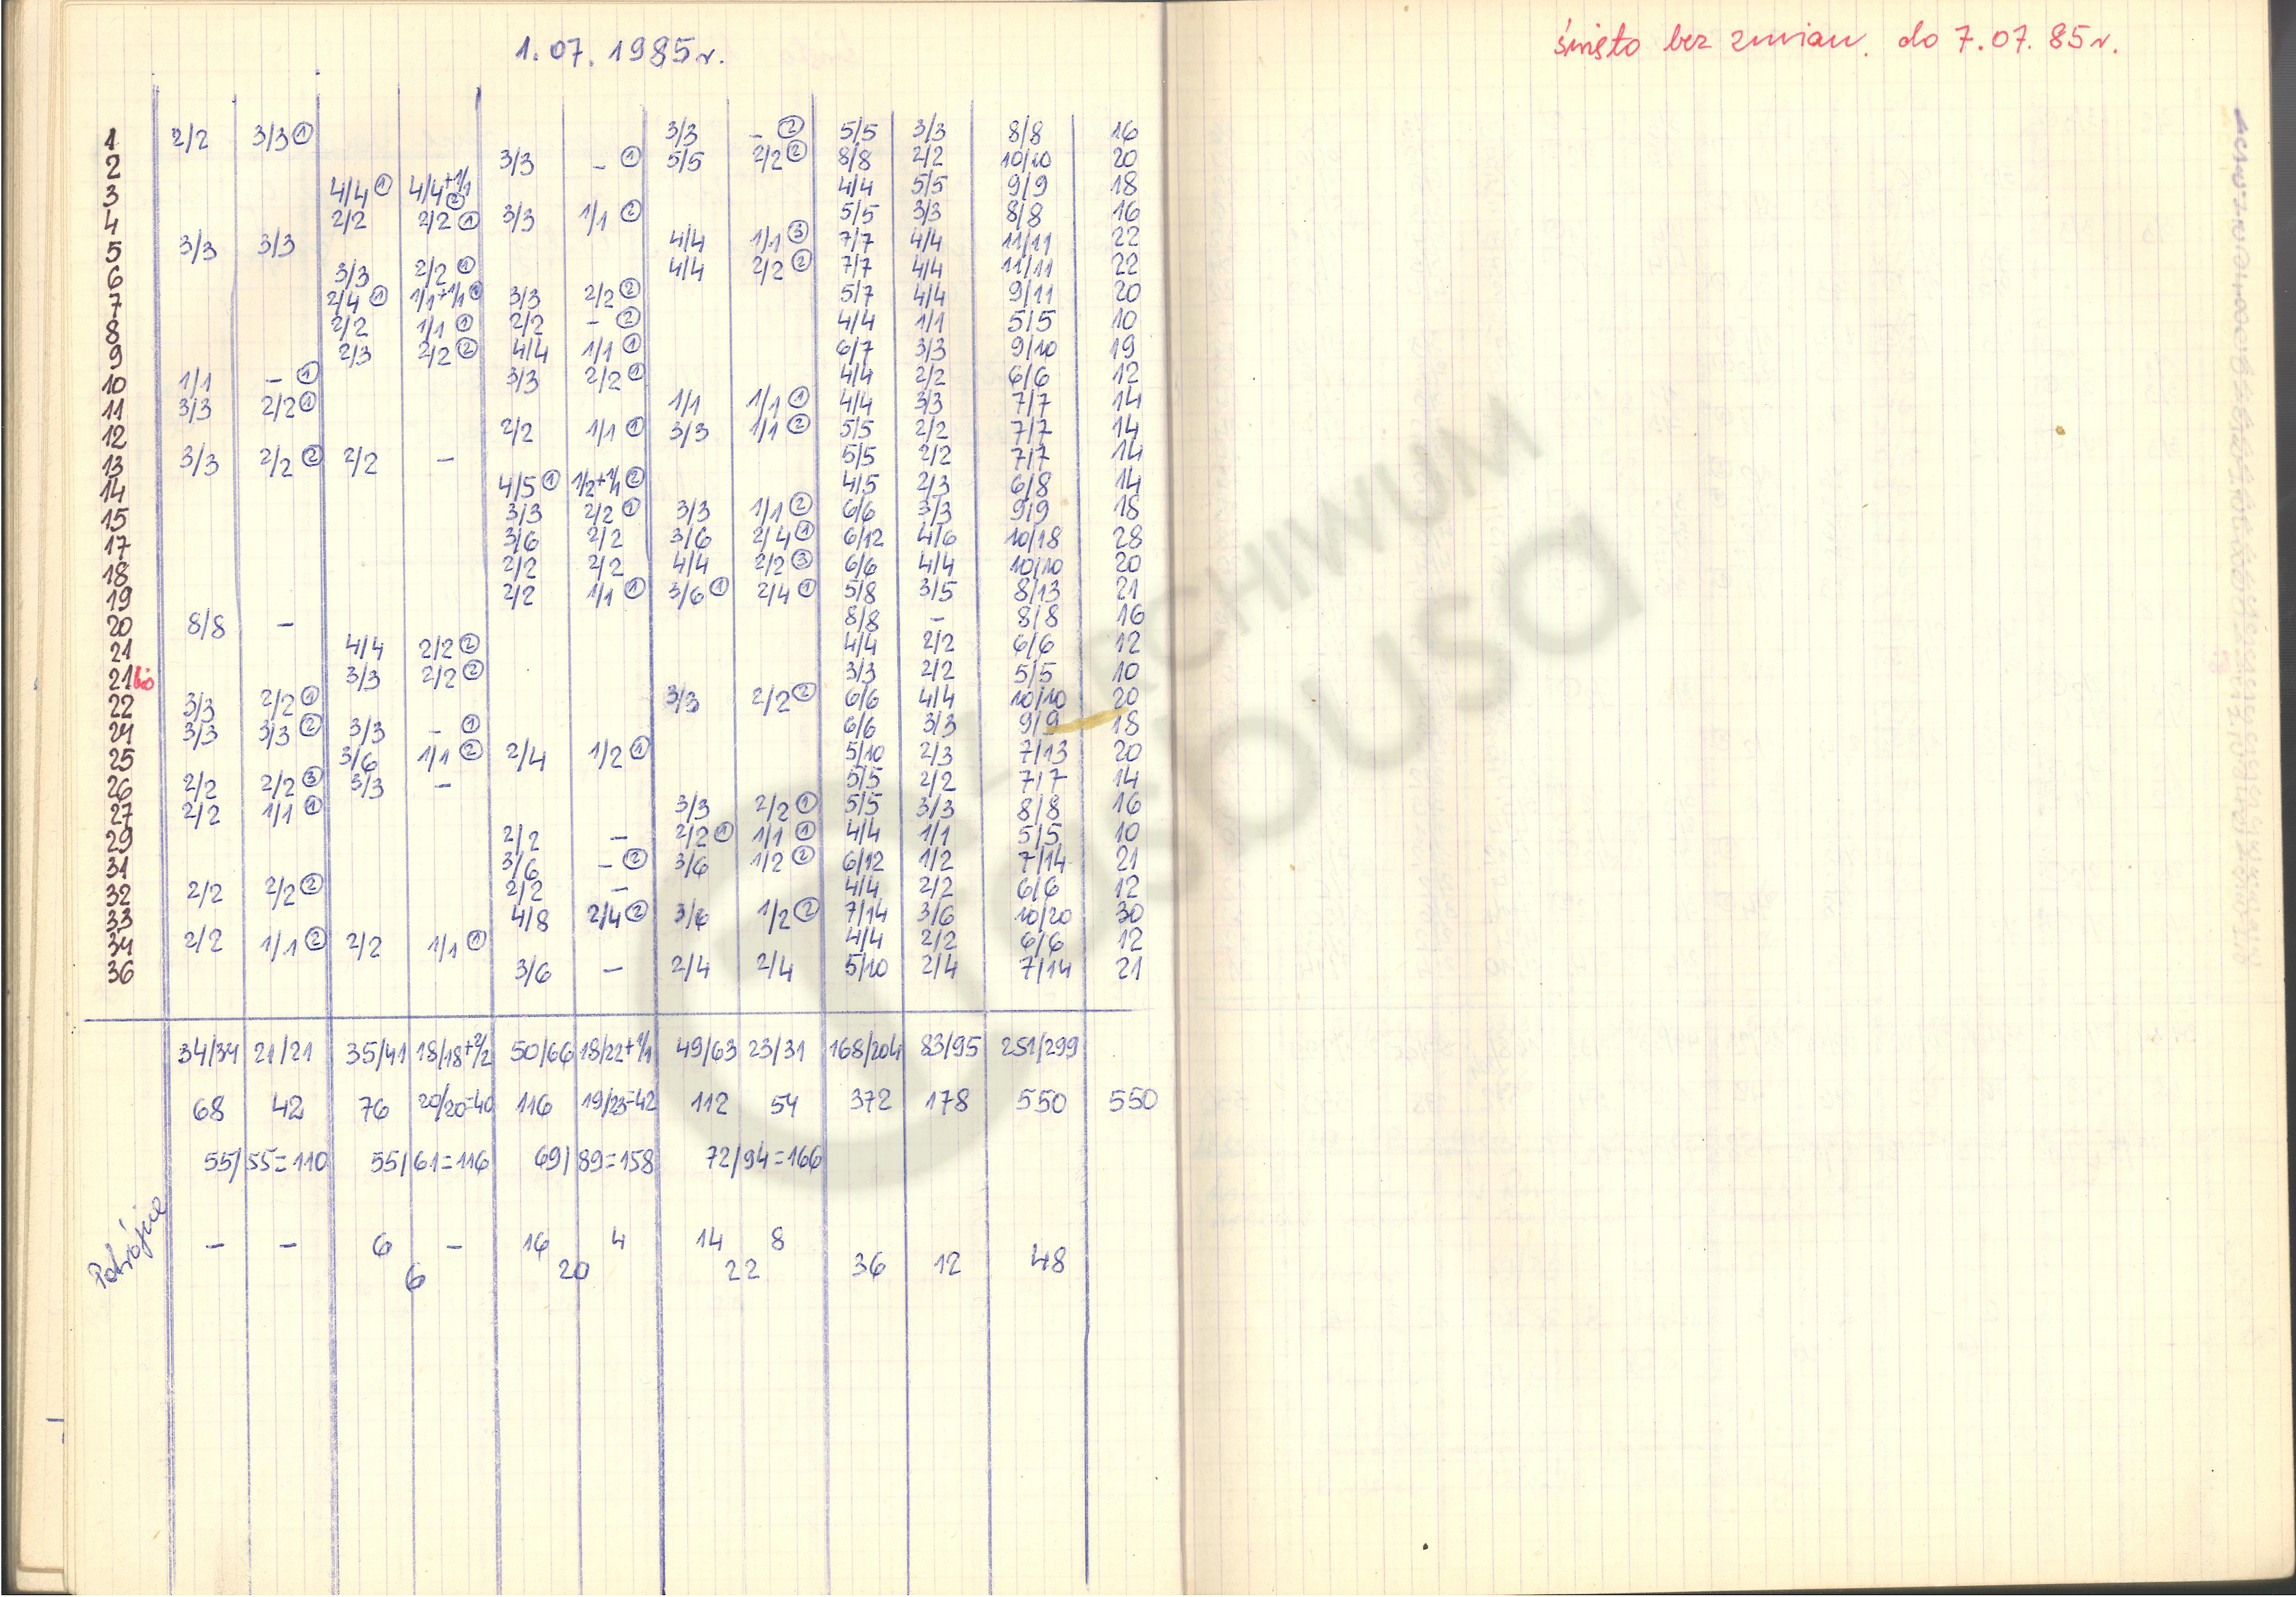 1.07.1985r.
święto bez zmian. do 7.07.85r.
1 2/2 3/3 ① 3/3 - ② 5/5 3/3 8/8 16
2 3/3 - ① 5/5 2/2 ② 8/8 2/2 10/10 20
3 4/4 ① 4/4+1/1 ② 4/4 5/5 9/9 18
4 2/2 2/2 ① 3/3 1/1 ② 5/5 3/3 8/8 16
5 3/3 3/3 4/4 1/1 ③ 7/7 4/4 11/11 22
6 3/3 2/2 ① 4/4 2/2 ② 7/7 4/4 11/11 22
7 2/4 ① 1/1+1/1 ① 3/3 2/2 ② 5/7 4/4 9/11 20
8 2/2 1/1 ① 2/2 - ② 4/4 1/1 5/5 10
9 2/3 2/2 ② 4/4 1/1 ① 6/7 3/3 9/10 19
10 1/1 - ① 3/3 2/2 ① 4/4 2/2 6/6 12
11 3/3 2/2 ① 1/1 1/1 ① 4/4 3/3 7/7 14
12 2/2 1/1 ① 3/3 1/1 ② 5/5 2/2 7/7 14
13 3/3 2/2 ② 2/2 - 5/5 2/2 7/7 14
14 4/5 ① 1/2+1/1 ② 4/5 2/3 6/8 14
15 3/3 2/2 ① 3/3 1/1 ② 6/6 3/3 9/9 18
17 3/6 2/2 3/6 2/4 ① 6/12 4/6 10/18 28
18 2/2 2/2 4/4 2/2 ③ 6/6 4/4 10/10 20
19 2/2 1/1 ① 3/6 ① 2/4 ① 5/8 3/5 8/13 21
20 8/8 - 8/8 - 8/8 16
21 4/4 2/2 ② 4/4 2/2 6/6 12
21 bis 3/3 2/2 ② 3/3 2/2 5/5 10
22 3/3 2/2 ① 3/3 2/2 ② 6/6 4/4 10/10 20
24 3/3 3/3 ② 3/3 - ① 6/6 3/3 9/9 18
25 3/6 1/1 ② 2/4 1/2 ① 5/10 2/3 7/13 20
26 2/2 2/2 ③ 3/3 - 5/5 2/2 7/7 14
27 2/2 1/1 ① 3/3 2/2 ① 5/5 3/3 8/8 16
29 2/2 - 2/2 ① 1/1 ① 4/4 1/1 5/5 10
31 3/6 - ② 3/6 1/2 ② 6/12 1/2 7/14 21
32 2/2 2/2 ② 2/2 - 4/4 2/2 6/6 12
33 4/8 2/4 ② 3/6 1/2 ② 7/14 3/6 10/20 30
34 2/2 1/1 ② 2/2 1/1 ① 4/4 2/2 6/6 12
36 3/6 - 2/4 2/4 5/10 2/4 7/14 21
34/34 21/21 35/41 18/18+2/2 50/66 18/22+1/1 49/63 23/31 168/204 83/95 251/299
68 42 76 20/20=40 116 19/23=42 112 54 372 178 550 550
55/55=110 55/61=116 69/89=158 72/94=166
Potrójne - - 6 - 16 4 14 8
6 20 22 36 12 48
ARCHIWUM